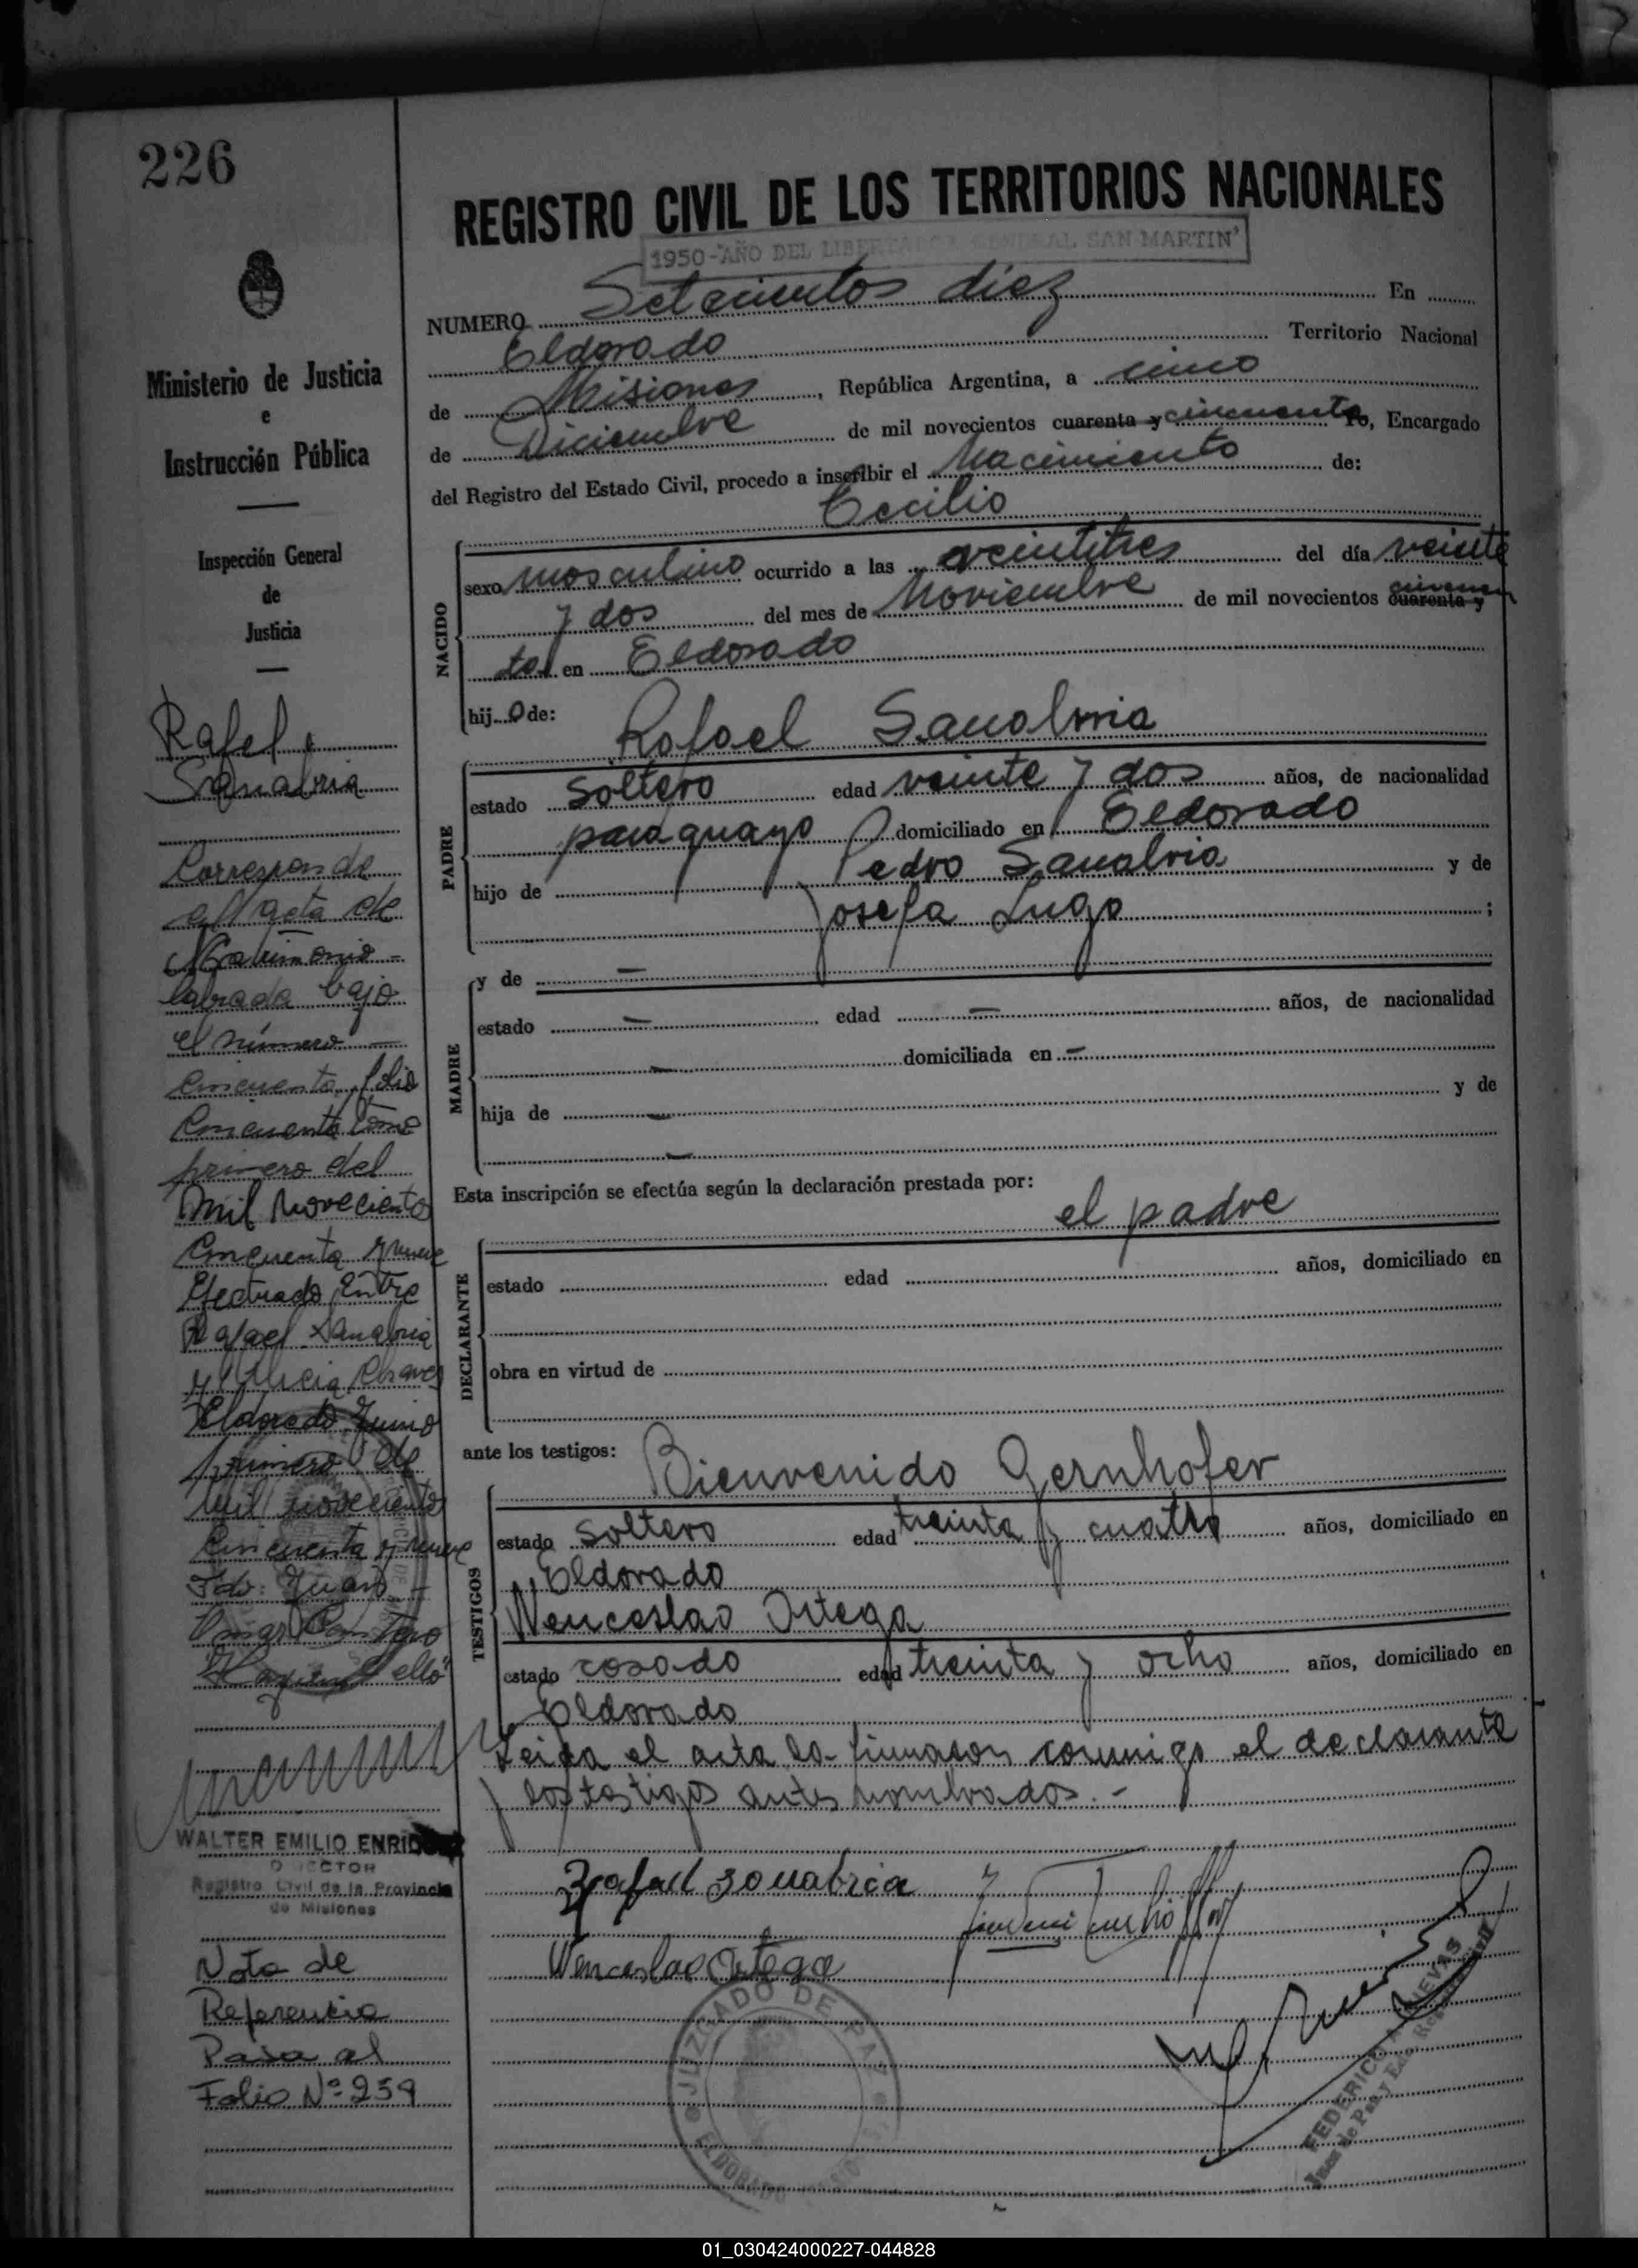 226
Ministerio de Justicia
e
Instrucción Pública
Inspección General
de
Justicia
Rafel
Sanabria
Corresponde
al acta de
Matrimonio -
labrada bajo
el número -
Cincuenta, folio
Cincuenta tomo
primero del
Mil Noveciento
Cincuenta y nueve
Efectuado Entre
Rafael Sanabria
y Alicia Chavez
Eldorado Junio
primero de
mil noveciento
Cincuenta y nueve
Fdo: Juan -
Omar
WALTER EMILIO
DIRECTOR
Registro Civil de la Provincia
de Misiones
Nota de
Referencia
Pasa al
Folio Nº 259
REGISTRO CIVIL DE LOS TERRITORIOS NACIONALES
1950-"AÑO DEL LIBERTADOR GENERAL SAN MARTIN"
NUMERO Setecientos diez En
Eldorado Territorio Nacional
de Misiones, República Argentina, a cinco
de Diciembre de mil novecientos cuarenta y cincuenta Yo, Encargado
del Registro del Estado Civil, procedo a inscribir el Nacimiento de:
Cecilio
NACIDO
sexo masculino ocurrido a las veintitres del día veinte
y dos del mes de Noviembre de mil novecientos cuarenta y cincuen
ta en Eldorado
hijo de: Rafael Sanabria
PADRE
estado soltero edad veinte y dos años, de nacionalidad
paraguayo domiciliado en Eldorado
hijo de Pedro Sanabria y de
Josefa Lugo ;
MADRE
y de —
estado — edad — años, de nacionalidad
— domiciliada en —
hija de — y de
—
Esta inscripción se efectúa según la declaración prestada por:
el padre
DECLARANTE
estado edad años, domiciliado en
obra en virtud de
ante los testigos: Bienvenido Gernhofer
TESTIGOS
estado soltero edad treinta y cuatro años, domiciliado en
Eldorado
Wenceslao Ortega
estado casado edad treinta y ocho años, domiciliado en
Eldorado
Leida el acta la firmaron conmigo el declarante
y los testigos antes nombrados. -
Rafael Sanabria
Wenceslao Ortega
JUZGADO DE PAZ
ELDORADO
FEDERICO A. CUEVAS
Juez de Paz y Enc. Registro Civil
01_030424000227-044828